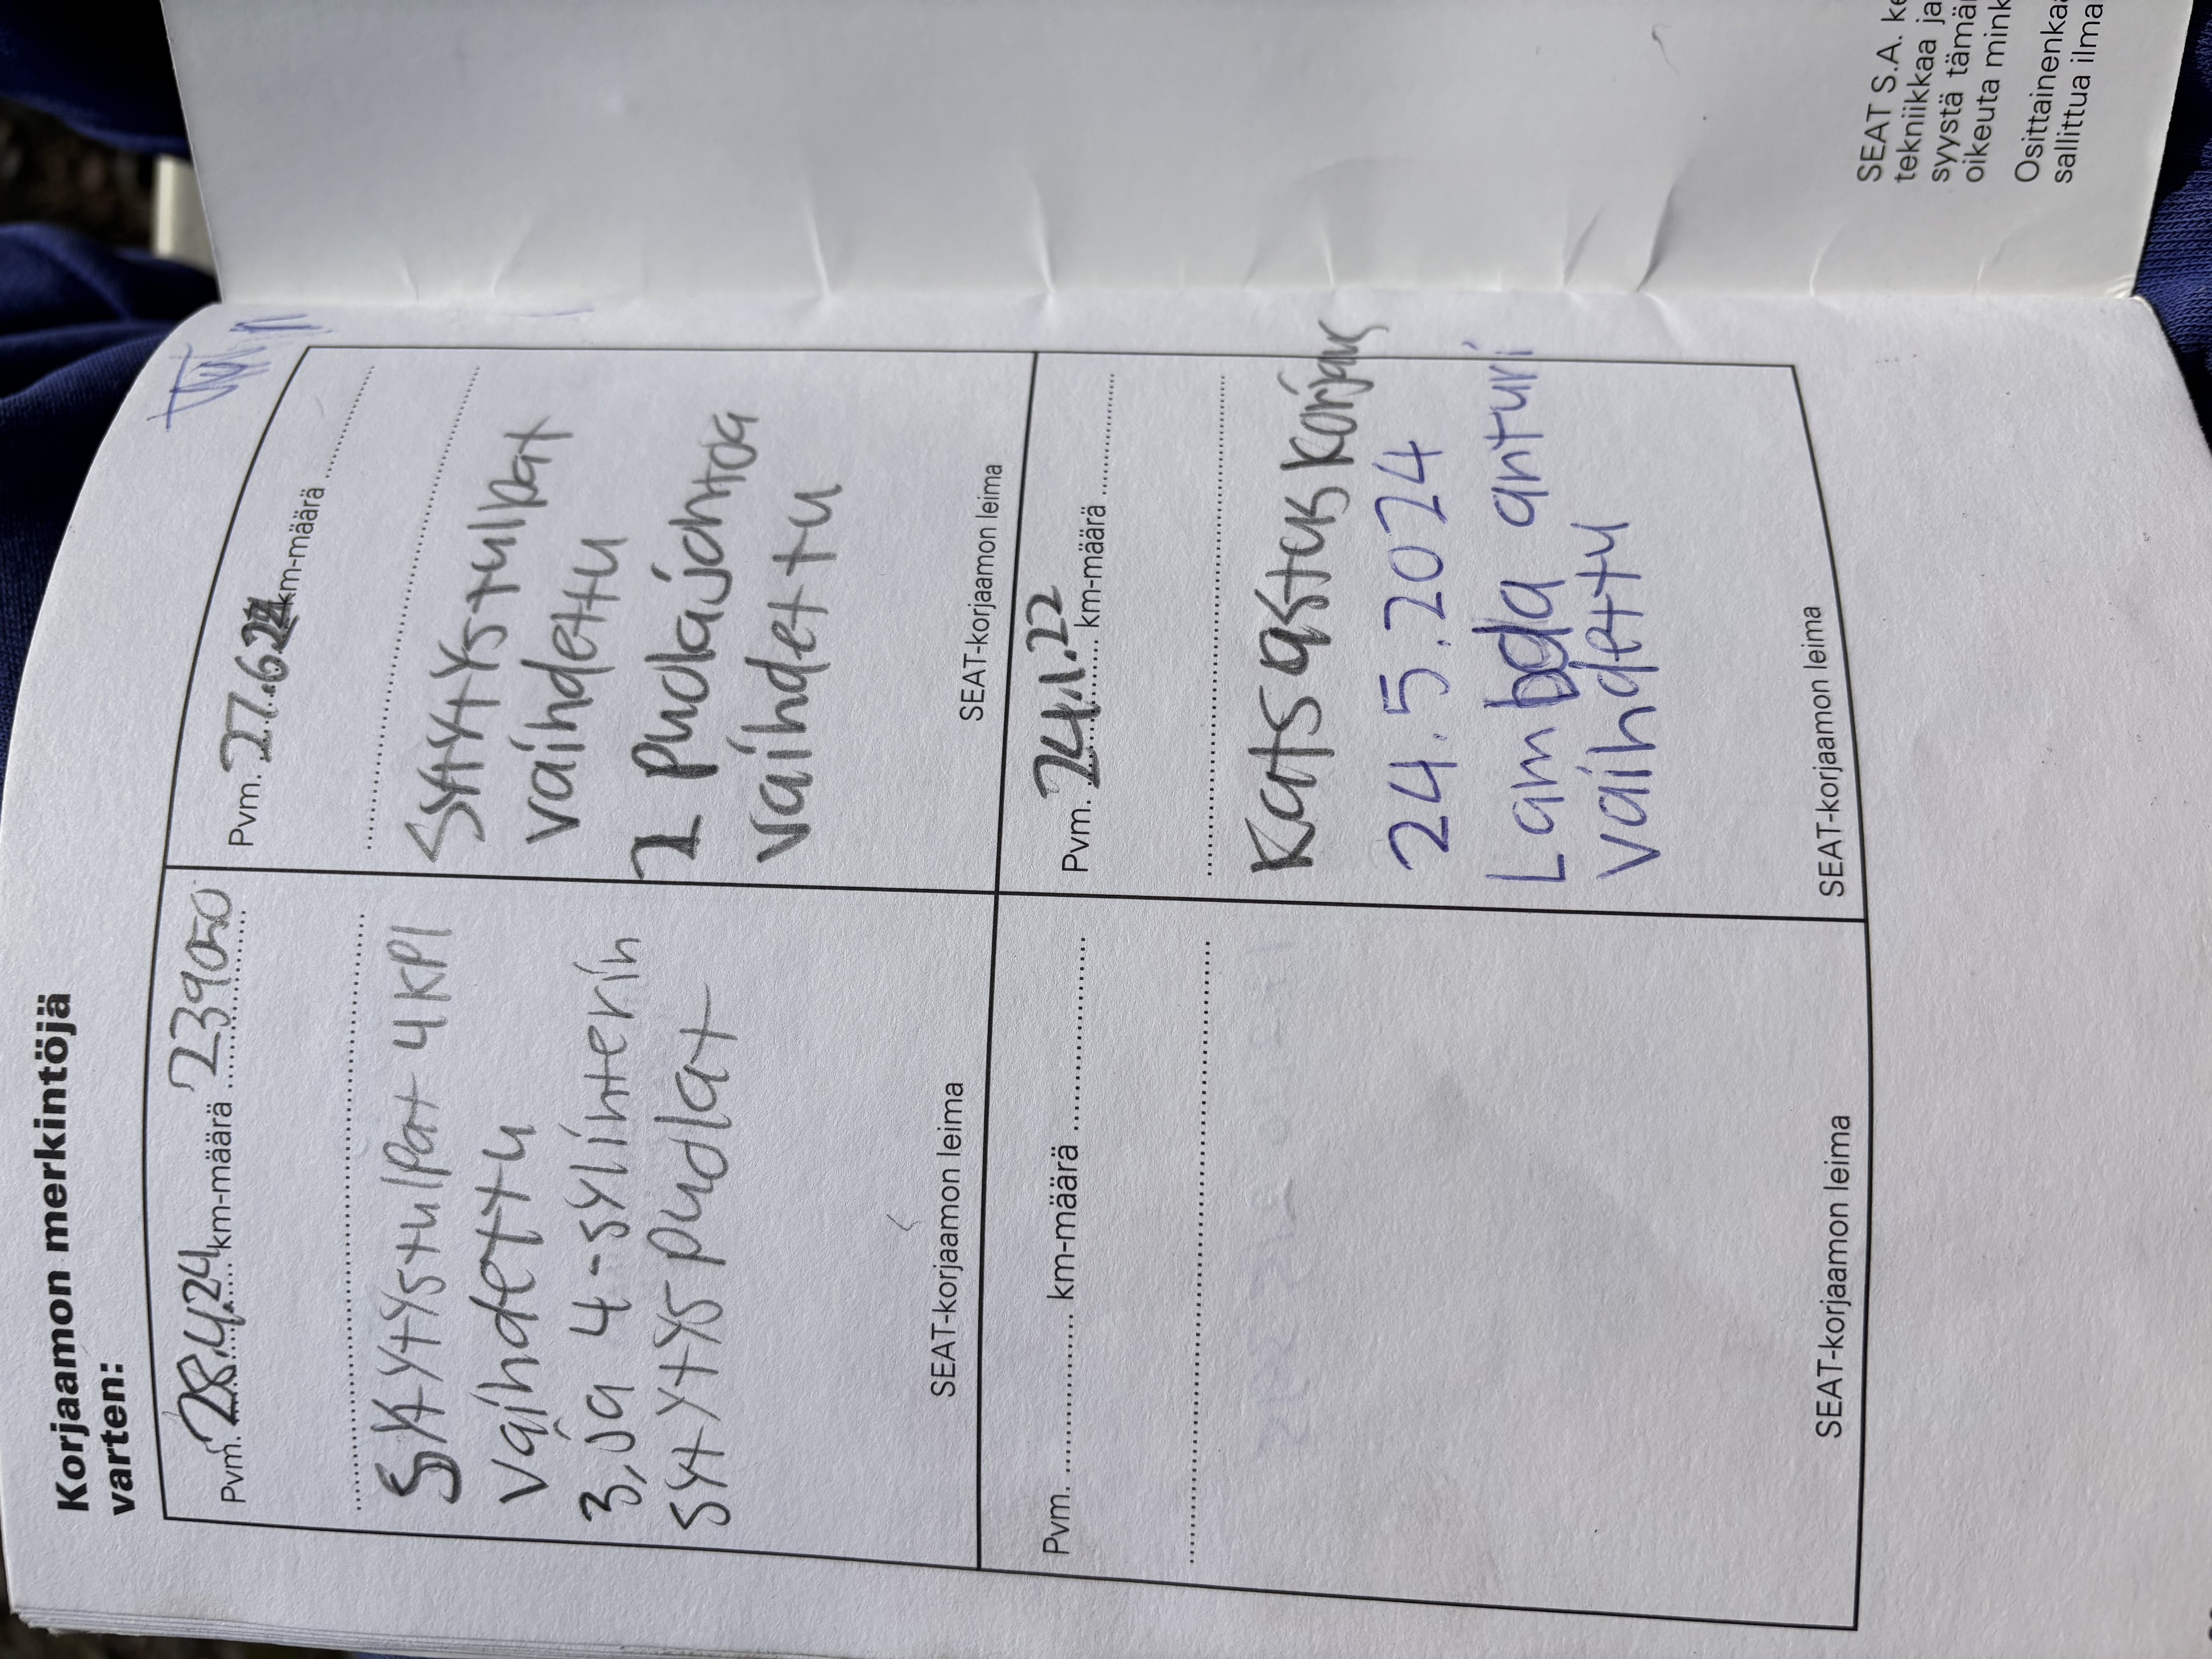 Korjaamon merkintöjä
varten:
Pvm. 28.4.24 km-määrä 239050
Sytytystulpat 4 KPl
vaihdettu
3, ja 4-sylinterin
sytytys puolat
SEAT-korjaamon leima
Pvm. 27.6 24 km-määrä
Sytytystulpat
vaihdettu
2 puolajohtoa
vaihdettu
SEAT-korjaamon leima
Pvm. km-määrä
SEAT-korjaamon leima
Pvm. 24.1.22 km-määrä
Katsastus korjaus
24.5.2024
Lambda anturi
vaihdettu
SEAT-korjaamon leima
SEAT S.A. ke
tekniikkaa ja
syystä tämä
oikeuta mink
Osittainenkaa
sallittua ilma